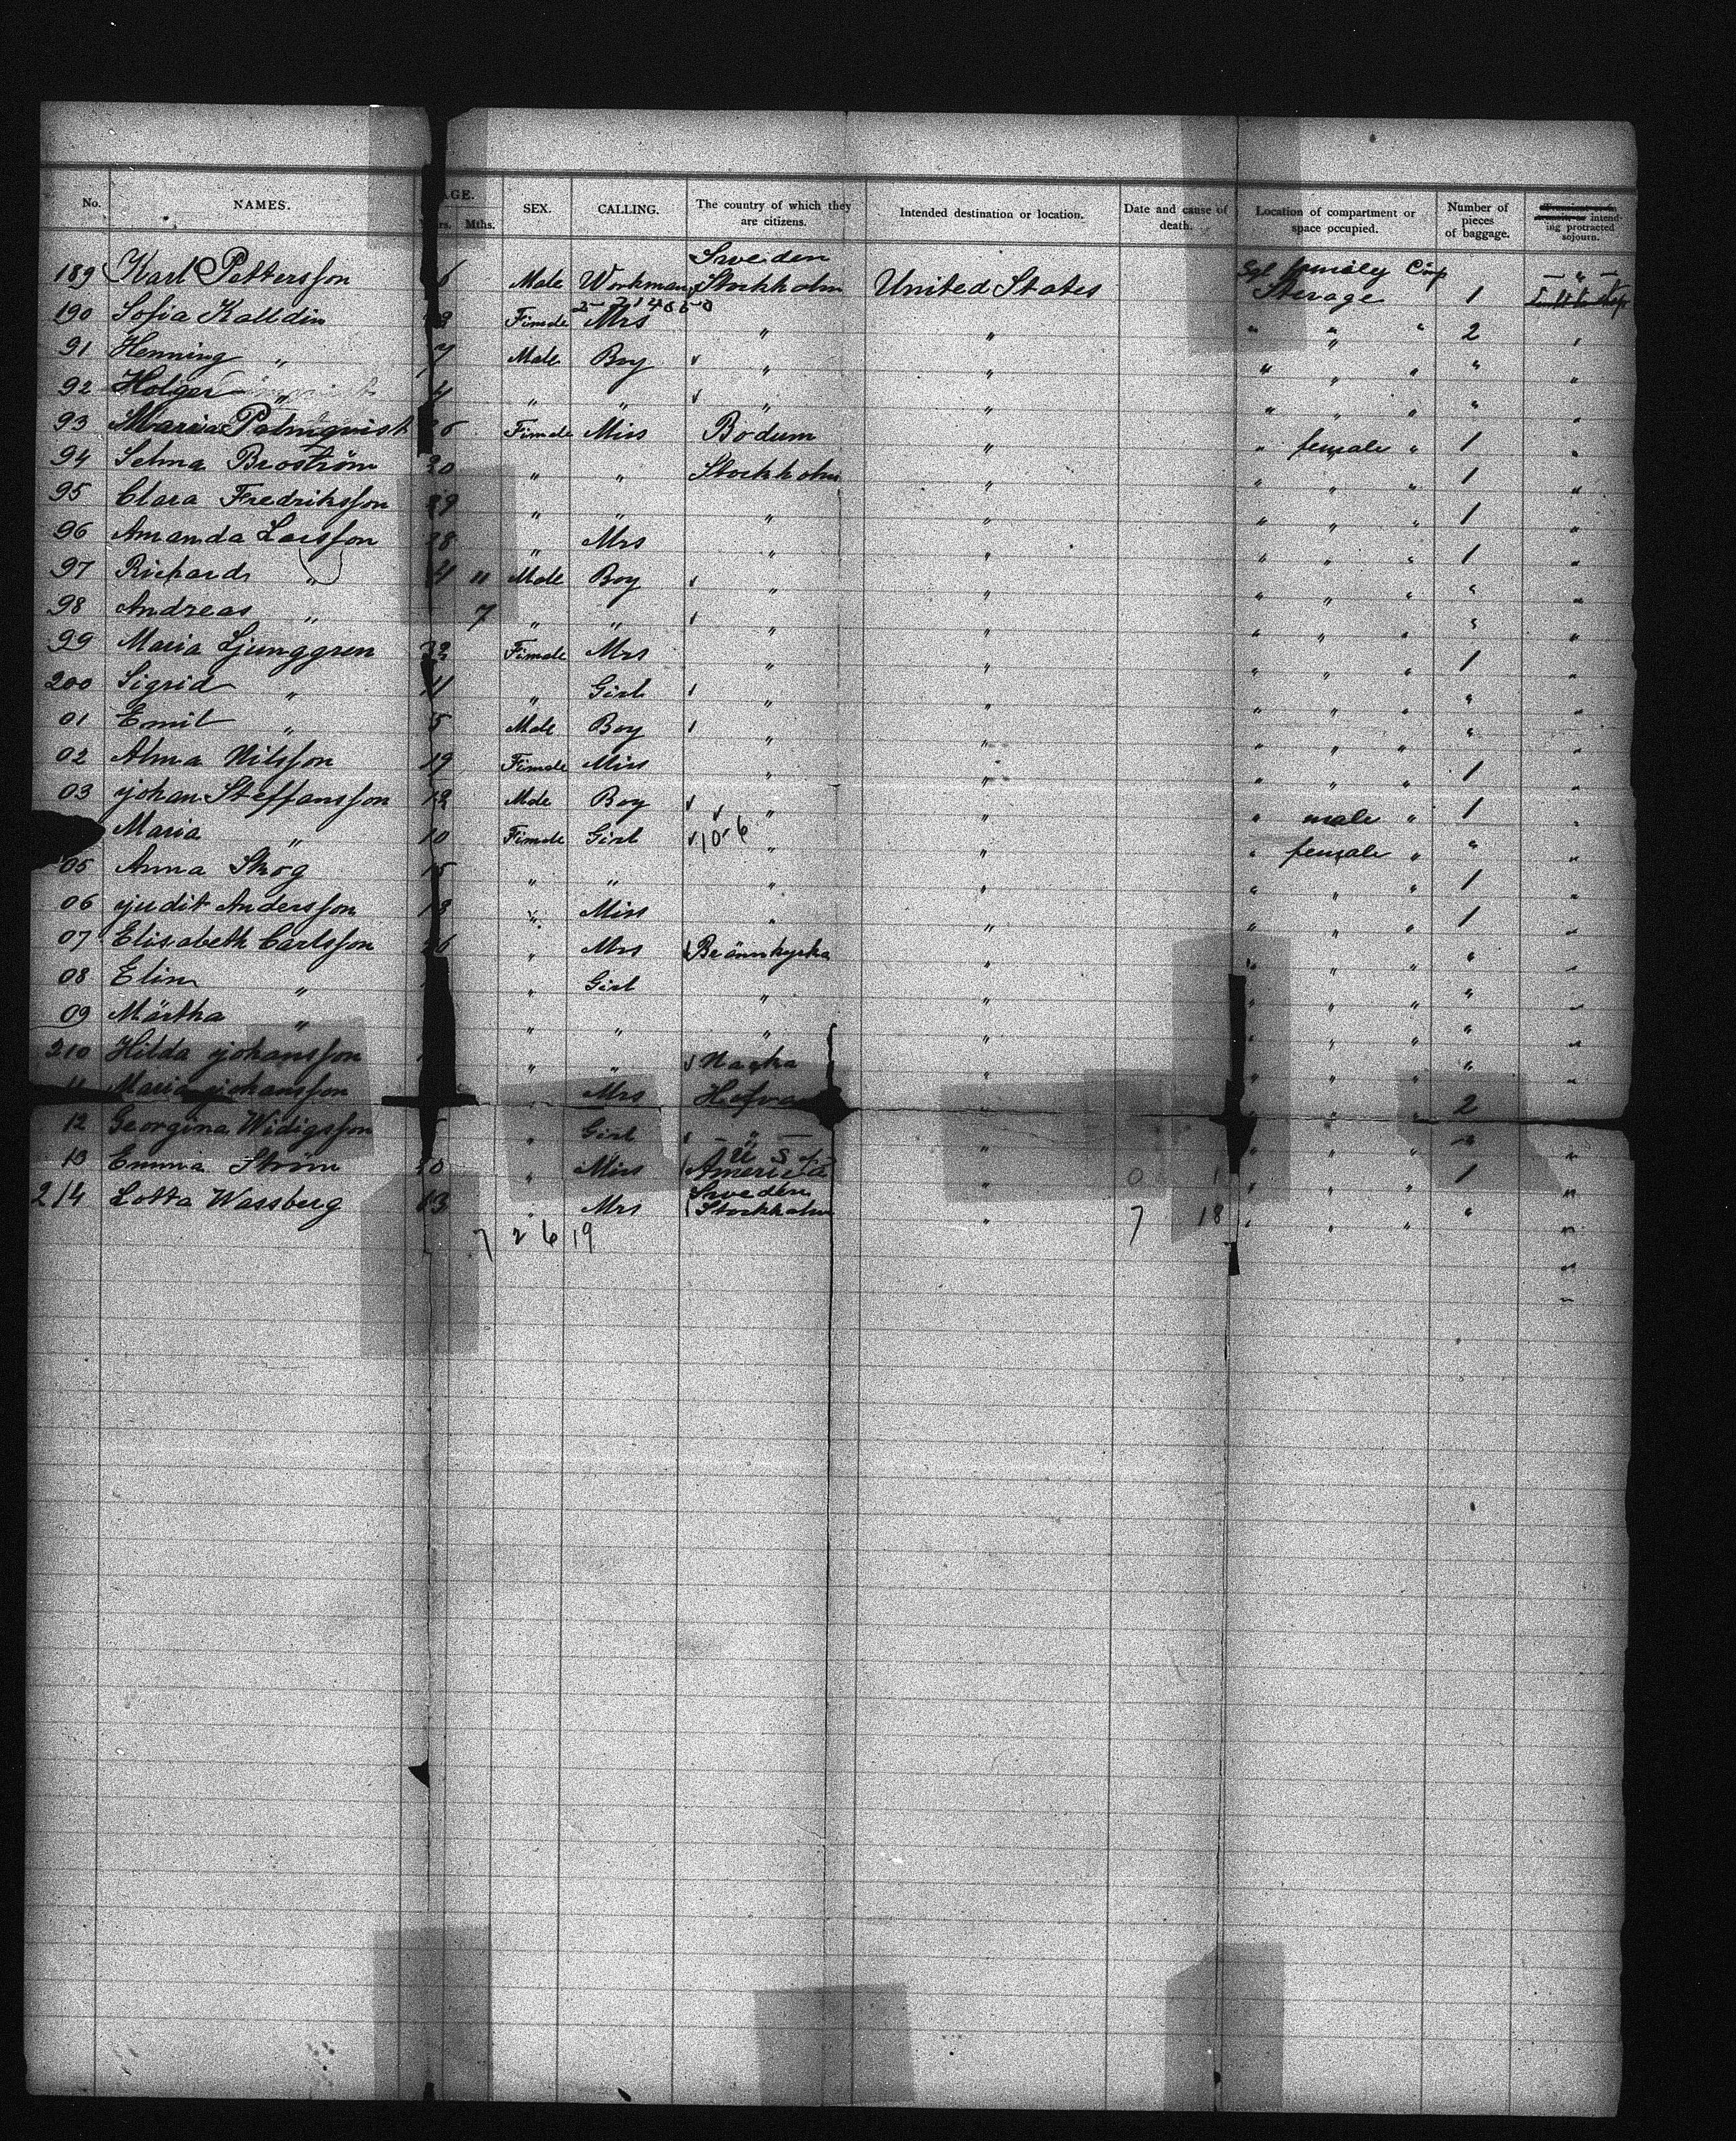 No. NAMES. AGE. Mths. SEX. CALLING. The country of which they are citizens. Intended destination or location. Date and cause of death. Location of compartment or space occupied. Number of pieces of baggage. intending protracted sojourn.
Sweden
189 Karl Pettersson Male Workman Stockholm United States family Sterage 1
190 Sofia Kalldin Fimale Mrs " " " " " 2
91 Henning " 7 Male Boy " " " " " "
92 Holger " 4 " " " " " " " "
93 Maria Palmqvist Fimale Miss Bodum " " female " 1 "
94 Selma Broström 20 " " Stockholm " " " " 1 "
95 Clara Fredriksson 29 " " " " " " " 1 "
96 Amanda Larsson 28 " Mrs " " " " " 1 "
97 Richard " 4 11 Male Boy " " " " " " "
98 Andreas " 7 " " " " " " " " "
99 Maria Ljunggren 32 Fimale Mrs " " " " " 1 "
200 Sigrid " 11 " Girl " " " " " " "
01 Emil " 5 Male Boy " " " " " " "
02 Alma Nilsson 19 Fimale Miss " " " " " 1 "
03 Johan Steffansson 12 Male Boy " " " male " 1 "
Maria " 10 Fimale Girl 10-6 " " " female " " "
05 Anna Skog 15 " " " " " " " 1 "
06 Judit Andersson 18 " Miss " " " " " 1 "
07 Elisabeth Carlsson 26 " Mrs Brännkyrka " " " " " "
08 Elin " " Girl " " " " " " "
09 Märtha " " " " " " " " " "
210 Hilda Johansson " " Nacka " " " " " "
11 Maria Johansson Mrs " " " 2
12 Georgina Widigsson " Girl " " " " " " "
U S of
13 Emma Ström " Miss America " 0 1 " " " 1 "
Sweden
214 Lotta Wassberg " Mrs Stockholm " 7 18 " " " " "
7 2 6 19